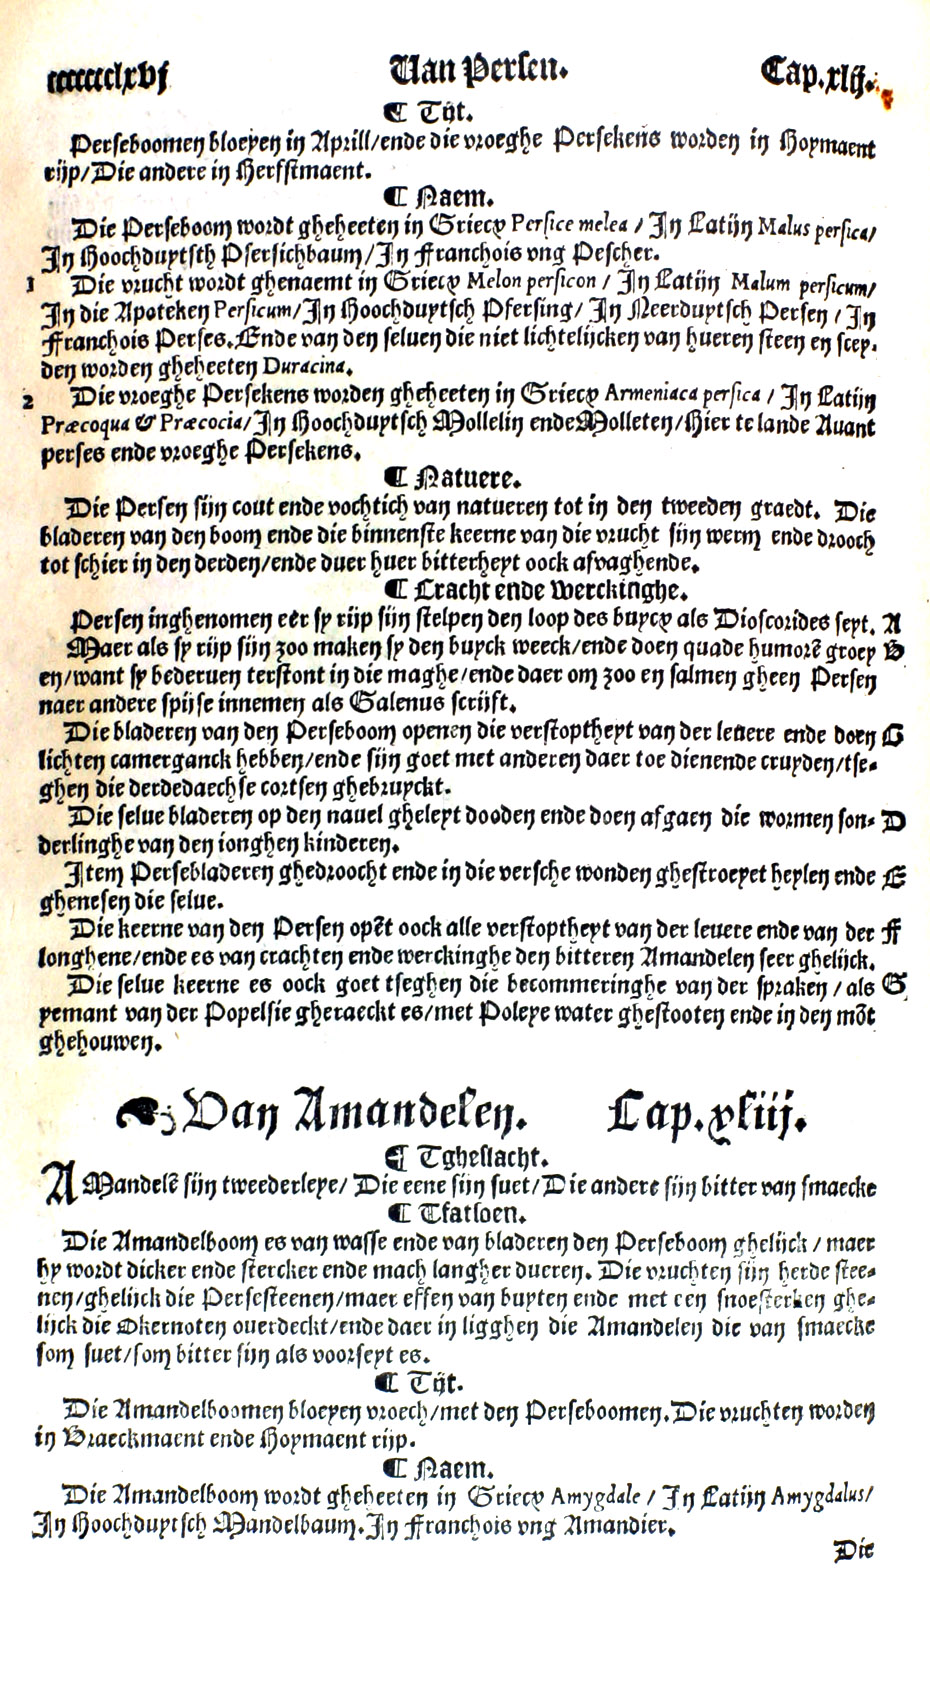 ccccccclxvj Van Persen. Cap.xlij.
¶ Tijt.
Perseboomen bloeyen in Aprill/ende die vroeghe Persekens worden in Hoymaent
rijp/Die andere in Herfstmaent.
¶ Naem.
Die Perseboom wordt gheheeten in Griecx Persice melea / In Latijn Malus persica/
In Hoochduytsch Pfersichbaum/In Franchois vng Pescher.
1 Die vrucht wordt ghenaemt in Griecx Melon persicon / In Latijn Malum persicum/
In die Apoteken Persicum/In Hoochduytsch Pfersing/ In Neerduytsch Persen / In
Franchois Perses.Ende van den seluen die niet lichtelijcken van hueren steen en scey-
den worden gheheeten Duracina.
2 Die vroeghe Persekens worden gheheeten in Griecx Armeniaca persica / In Latijn
Præcoqua & Præcocia/In Hoochduytsch Mollelin ende Molleten/Hier te lande Auant
perses ende vroeghe Persekens.
¶ Natuere.
Die Persen sijn cout ende vochtich van natueren tot in den tweeden graedt. Die
bladeren van den boom ende die binnenste keerne van die vrucht sijn werm ende drooch
tot schier in den derden/ende duer huer bitterheyt oock afvaghende.
¶ Cracht ende Werckinghe.
Persen inghenomen eer sy rijp sijn stelpen den loop des buycx als Dioscorides seyt. A
Maer als sy rijp sijn zoo maken sy den buyck weeck/ende doen quade humorē groey B
en/want sy bederuen terstont in die maghe/ende daer om zoo en salmen gheen Persen
naer andere spijse innemen als Galenus scrijft.
Die bladeren van den Perseboom openen die verstoptheyt van der leuere ende doen C
lichten camerganck hebben/ende sijn goet met anderen daer toe dienende cruyden/tse-
ghen die derdedaechse cortsen ghebruyckt.
Die selue bladeren op den nauel gheleyt dooden ende doen afgaen die wormen son- D
derlinghe van den ionghen kinderen.
Item Persebladeren ghedroocht ende in die versche wonden ghestroeyet heylen ende E
ghenesen die selue.
Die keerne van den Persen opēt oock alle verstoptheyt van der leuere ende van der F
longhene/ende es van crachten ende werckinghe den bitteren Amandelen seer ghelijck.
Die selue keerne es oock goet tseghen die becommeringhe van der spraken / als G
yemant van der Popelsie gheraeckt es/met Poleye water ghestooten ende in den mōt
ghehouwen.
Van Amandelen. Cap.xliij.
¶ Tgheslacht.
AMandelē sijn tweederleye/ Die eene sijn suet/Die andere sijn bitter van smaecke
¶ Tfatsoen.
Die Amandelboom es van wasse ende van bladeren den Perseboom ghelijck / maer
hy wordt dicker ende stercker ende mach langher dueren. Die vruchten sijn herde stee-
nen/ghelijck die Persesteenen/maer effen van buyten ende met een snoesterken ghe-
lijck die Okernoten ouerdeckt/ende daer in ligghen die Amandelen die van smaecke
som suet/som bitter sijn als voorseyt es.
¶ Tijt.
Die Amandelboomen bloeyen vroech/met den Perseboomen.Die vruchten worden
in Braeckmaent ende Hoymaent rijp.
¶ Naem.
Die Amandelboom wordt gheheeten in Griecx Amygdale / In Latijn Amygdalus/
In Hoochduytsch Mandelbaum.In Franchois vng Amandier.
Die